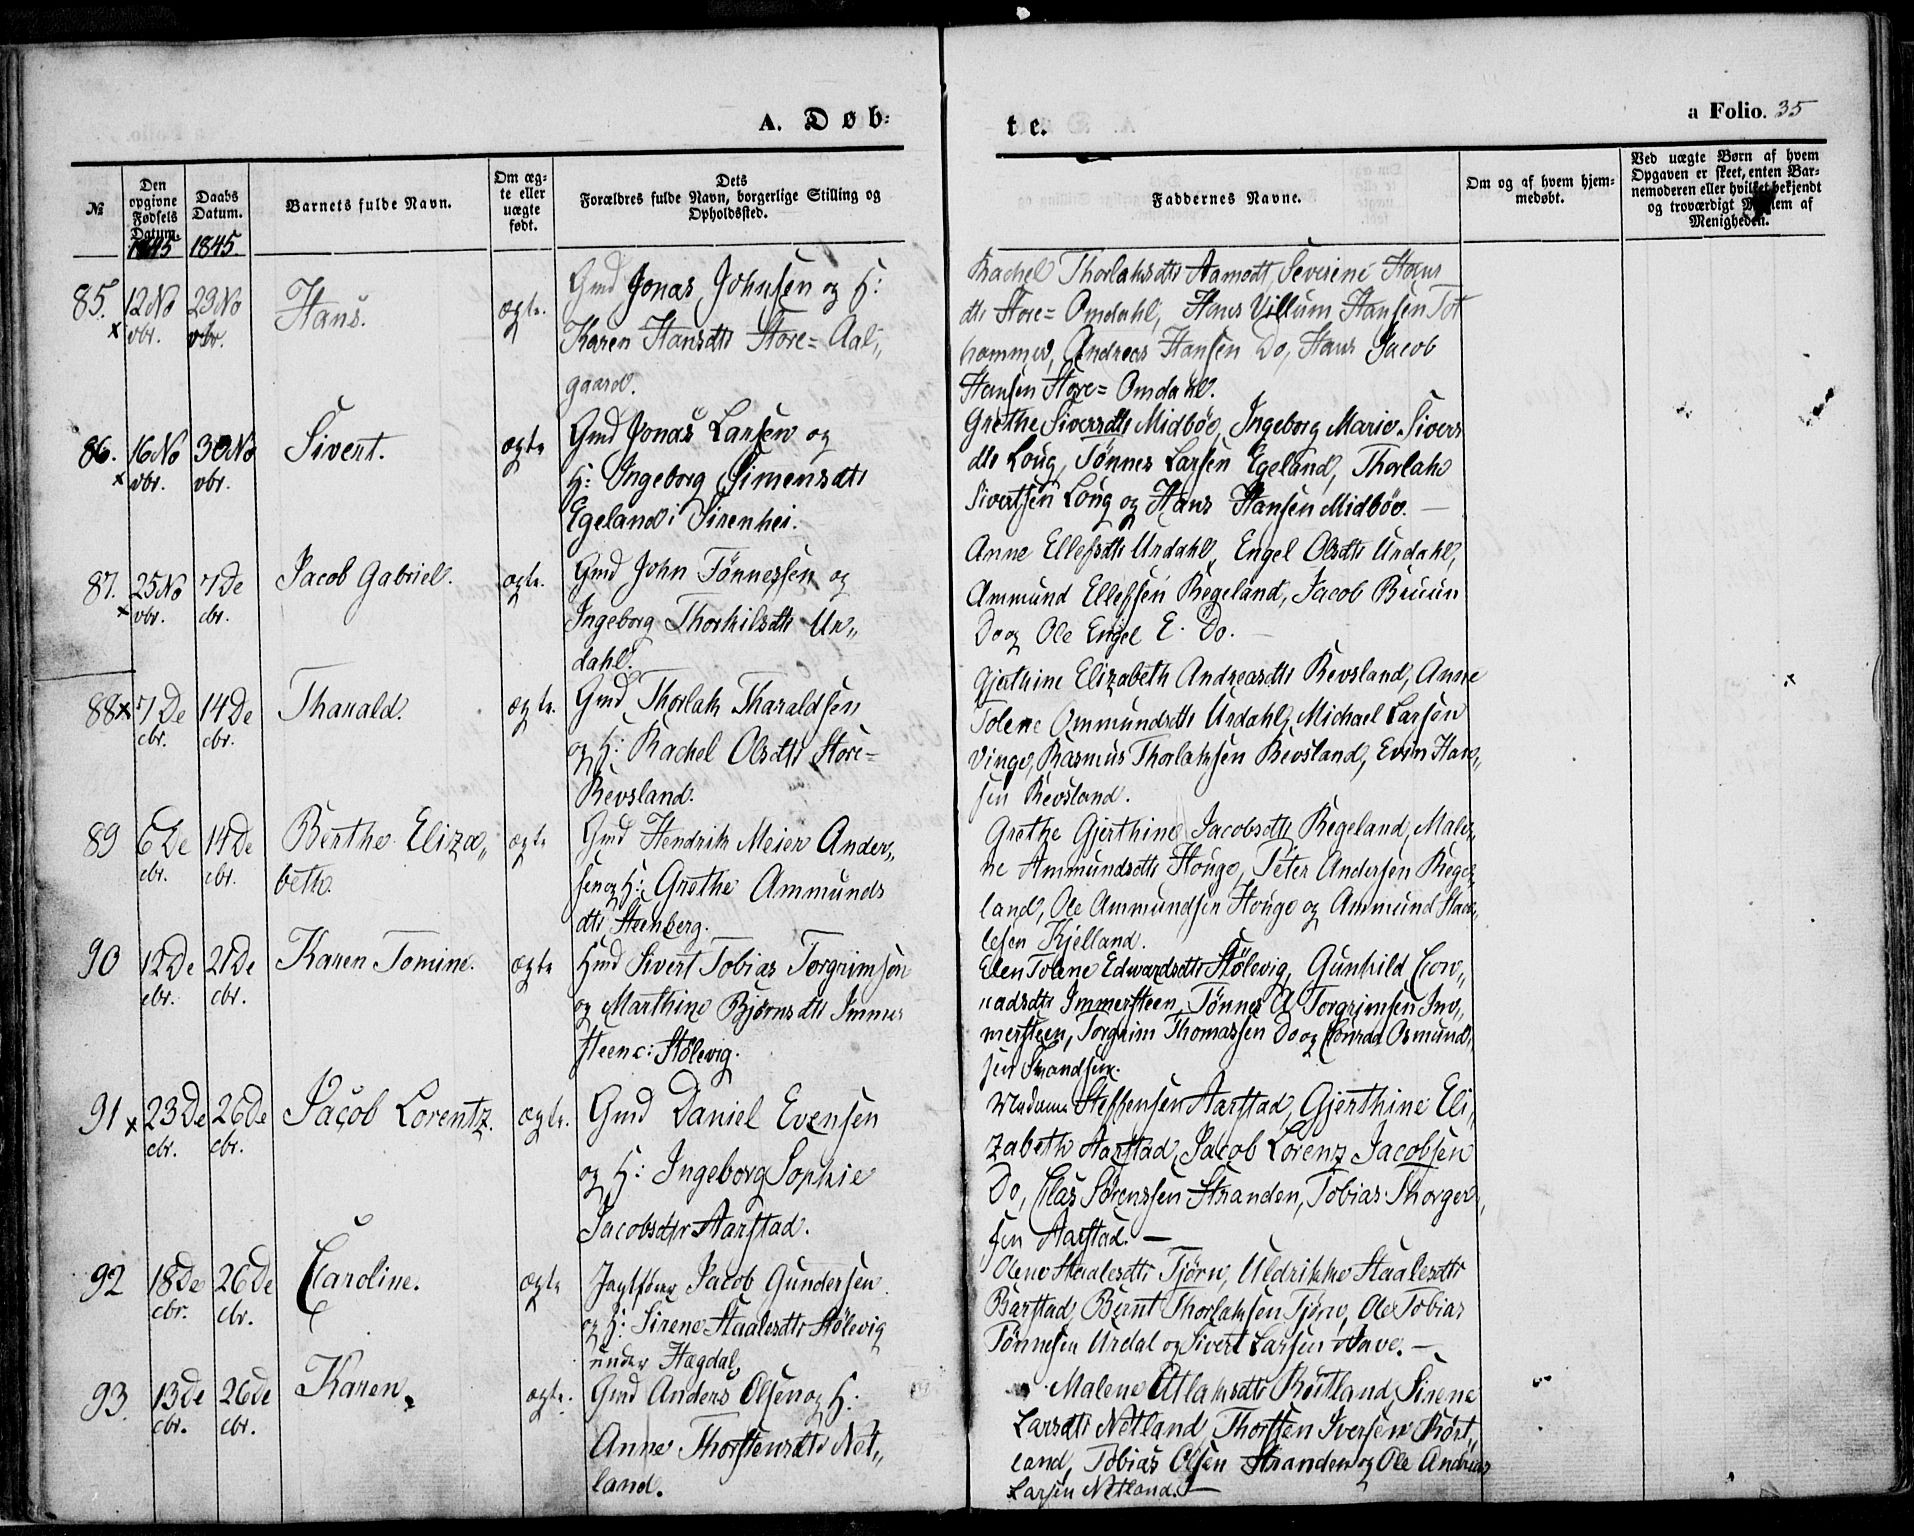 A. Døb=
te.
a Folio. 35
№
Den opgivne Fødsels Datum.
1845
Daabs Datum.
1845.
Barnets fulde Navn.
Om ægte eller uægte født.
Dets Forældres fulde Navn, borgerlige Stilling og Opholdssted.
Faddernes Navne.
Om og af hvem hjemmedøbt.
Ved uægte Børn af hvem Opgaven er skeet, enten Barnemoderen eller hvilket bekjendt og troværdigt Medlem af Menigheden.
85. 12 No 23 No Hans. ægte. Gmd Jonas Johnsen og H:
x vbr. vbr. Karen Hansdtr Store= Aal„
gaard.
Rachel Thorlaksdtr Aamodt, Severine Hans
dtr Store= Omdahl, Hans Villum Hansen Tot
hammer, Andreas Hansen Do, Hans Jacob
Hansen Store= Omdahl.
86. 16 No 30 No Sivert. ægte Gmd Jonas Larsen og
x vbr. vbr. H: Ingeborg Simensdtr
Egeland i Sirenhei.
Grethe Siversdtr Midbøe, Ingeborg Marie Sivers
dtr Loug, Tønnes Larsen Egeland, Thorlak
Sivertsen Loug og Hans Hansen Midbøe. —
87. 25 No 7 De Jacob Gabriel. ægte. Gmd John Tønnessen og
x vbr. cbr. Ingeborg Thorkilsdtr Ur„
dahl.
Anne Ellefsdtr Urdahl, Engel Olsdtr Urdahl,
Ammund Ellefsen Regeland, Jacob Bruun
Do og Ole Engel E. Do. —
88 x 7 De 14 De Tharald. ægte. Gmd Thorlak Tharaldsen
cbr. cbr. og H: Rachel Olsdtr Store=
Revsland.
Gjerthine Elizabeth Andreasdtr Revsland, Anne
Tolene Ommundsdtr Urdahl, Michael Larsen
Vinge, Rasmus Thorlaksen Revsland, Even Han„
sen Revsland.
89 6 De 14 De Berthe Eliza„ ægte Gmd Hendrik Meier Ander„
cbr. cbr. beth. sen og H: Grethe Ammunds
dtr Steenberg.
Grethe Gjerthine Jacobsdtr Regeland, Male„
ne Ammundsdtr Houge, Peter Andersen Rege„
land, Ole Ammundsen Houge og Ammund Staa„
lesen Kjelland.
90 12 De 21 De Karen Tomine. ægte Hmd Sivert Tobias Torgrimsen
cbr. cbr. og Marthine Bjørnsdtr Immer
steen c: Stølevig.
Elen Tolene Edwardsdtr Stølevig, Gunhild Con„
radsdtr Immersteen, Tønnes A Torgrimsen Im„
mersteen, Torgrim Thomassen Do og Conrad Osmund„
sen
91 x 23 De 26 De Jacob Lorentz. ægte. Gmd Daniel Evensen
cbr. cbr. og H: Ingeborg Sophie
Jacobsdtr Aarstad.
Madame Steffensen Aarstad, Gjerthine Eli„
zabeth Aarstad, Jacob Lorenz Jacobsen
Do, Elas Sørenssen Stranden, Tobias Thorger„
sen Aarstad. —
92 18 De 26 De Caroline. ægte Jagtfører Jacob Gundersen
cbr. cbr. og H: Sirene Staalesdtr Stølevig
under Hægdal.
Olene Staalesdtr Tjørn, Uldrikke Staalesdtr
Barstad, Bernt Thorlaksen Tjørn, Ole Tobias
Tønnesen Urdal og Sivert Larsen Have. —
93. 13 De 26 De Karen. ægte. Gmd Anders Olsen og H:
cbr. cbr. Anne Thorstensdtr Net„
land.
Malene Atlaksdtr Røitland, Sirene
Larsdtr Netland, Thorsten Iversen Røit„
land, Tobias Olsen Stranden og Ole Andreas
Larsen Netland. —